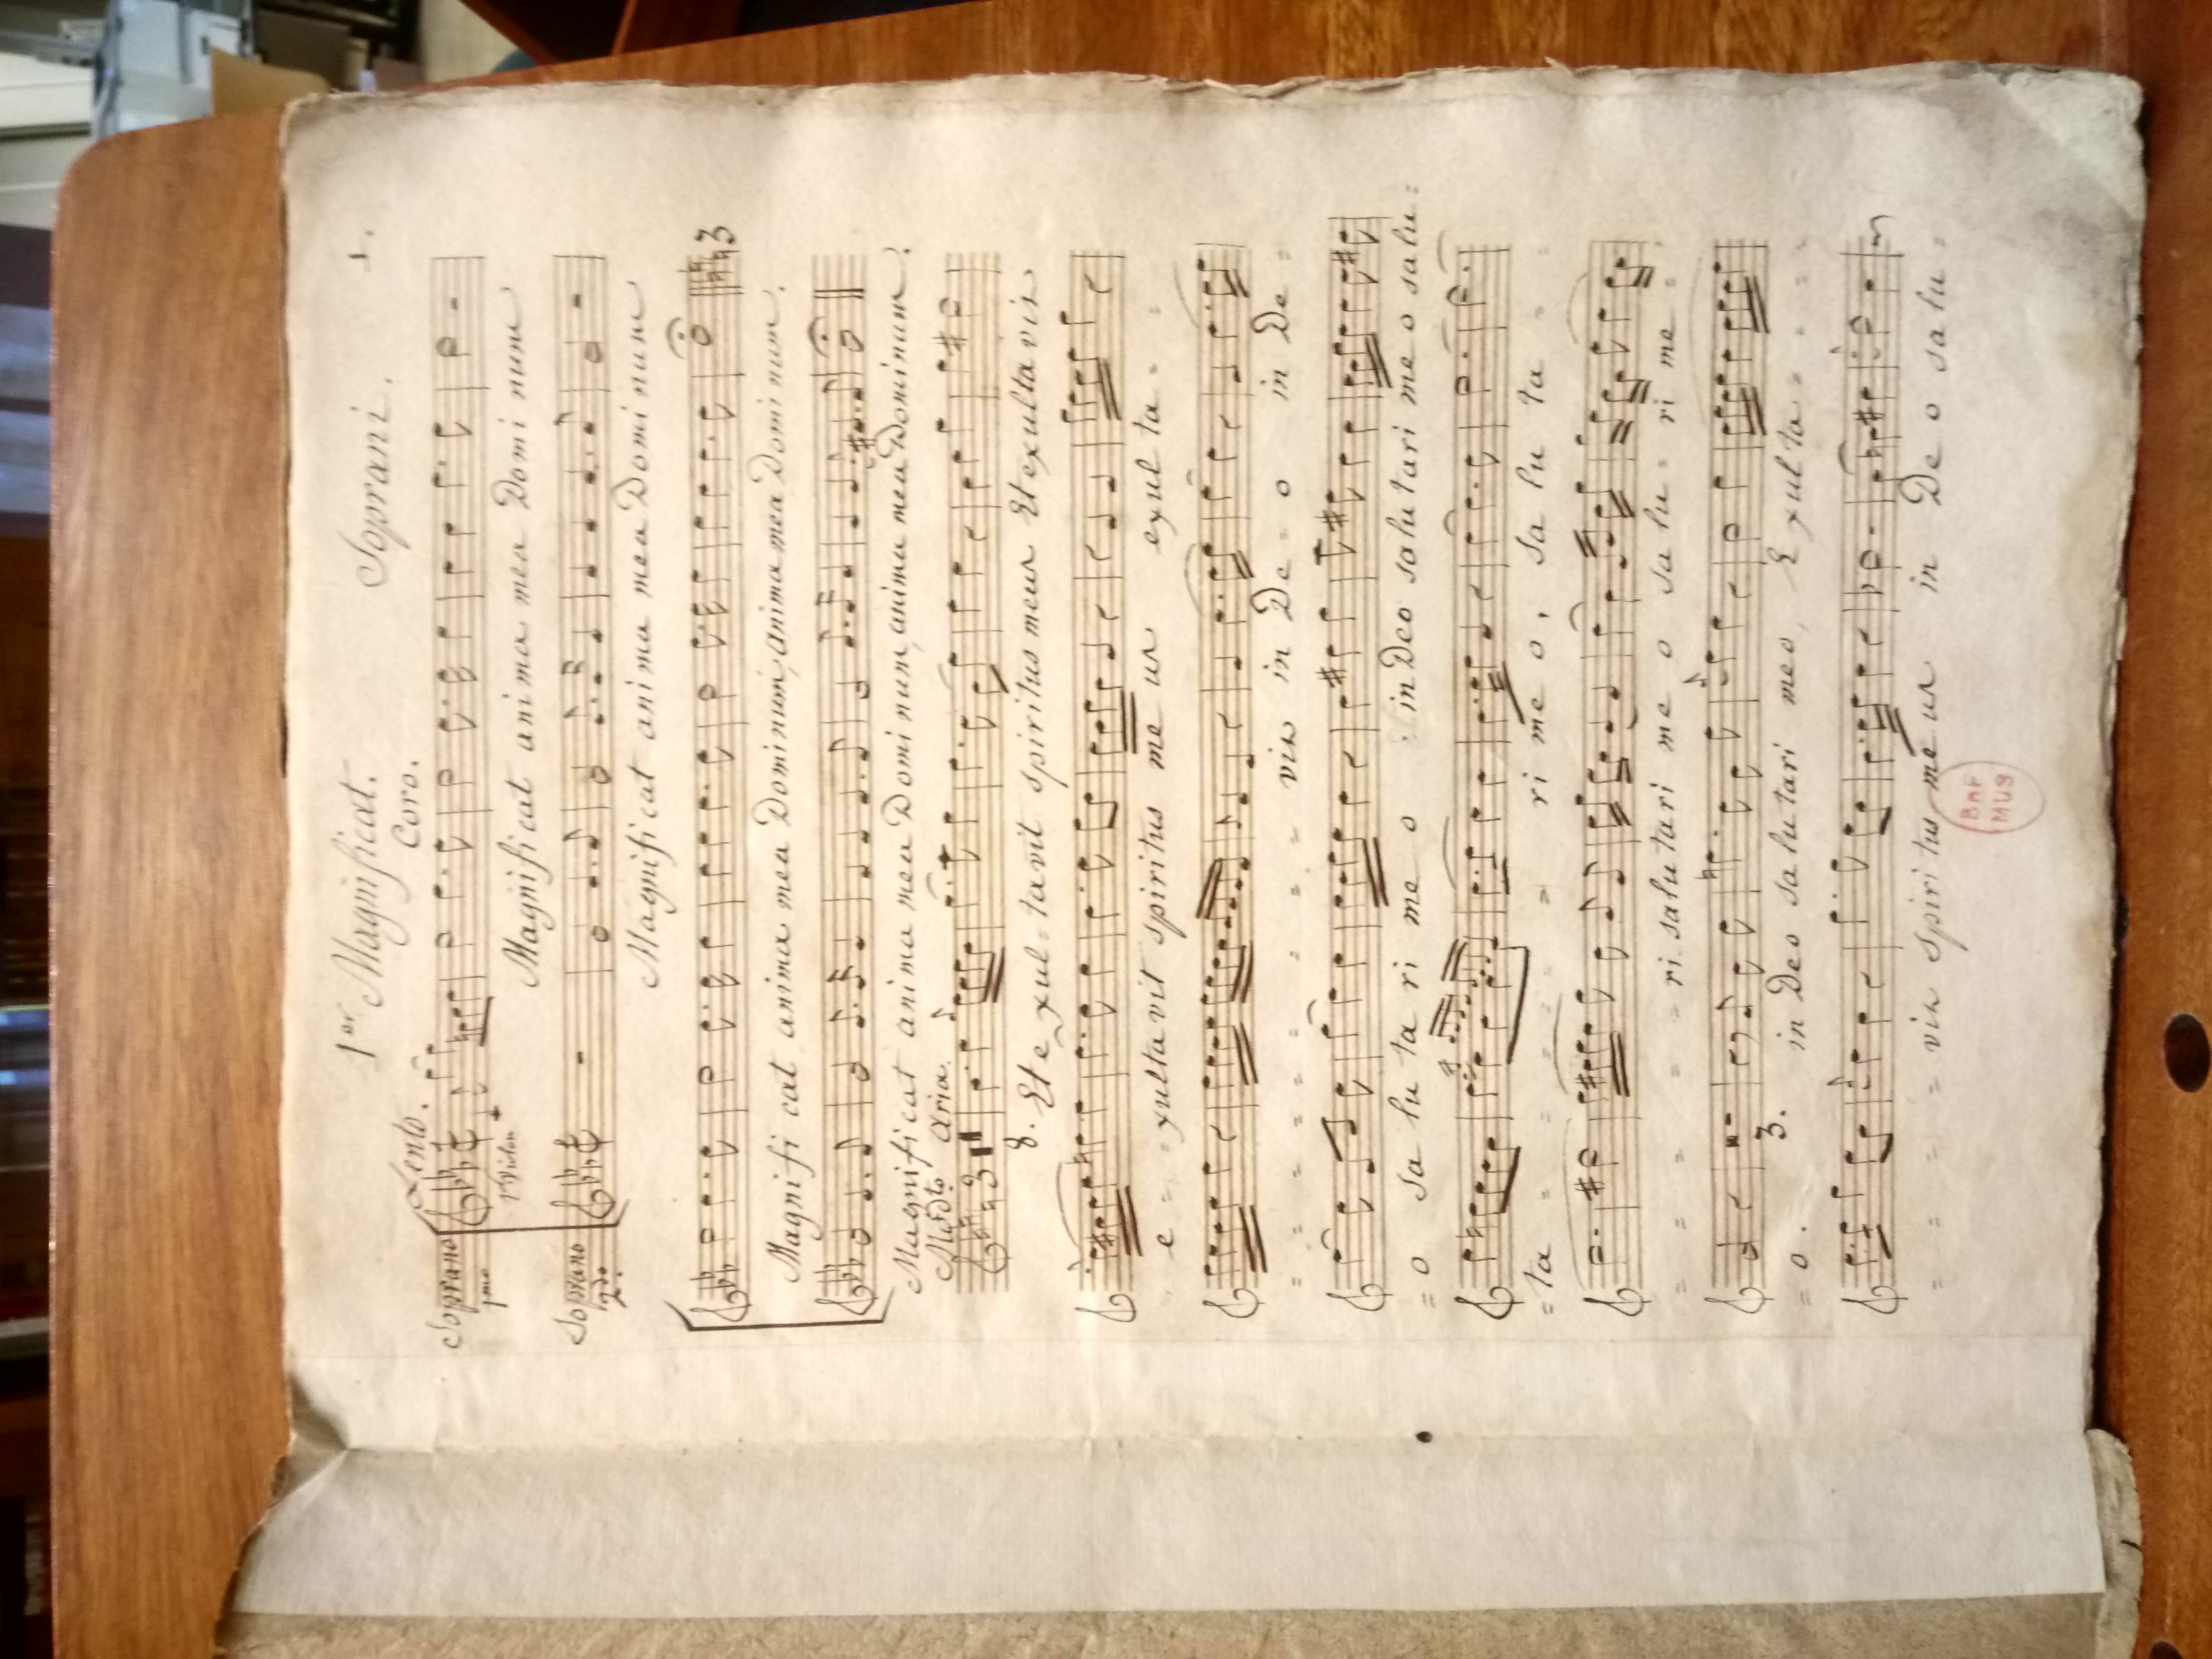 1er Magnificat. Soprani. 1.
Lento. Coro.
Soprano 1mo
1o Violon
Magnificat anima mea Domi num
Soprano 2do.
Magnificat anima mea Domi num
3
Magnifi cat anima mea Dominum, anima mea Dominum.
Magnificat anima mea Domi num, anima mea Dominum.
Modto. aria.
3 8. Et e xul = tavit spiritus meus Et exulta vit
e = xultavit spiritus me us exul ta =
= vit in De = o in De =
= o sa lu ta ri me o in Deo salu tari me o salu =
= ta = ri me o, sa lu ta =
= ri salutari me o sa lu = ri me =
= o. 3. in Deo salutari meo, E xul ta =
= vit spiritus me us in De o salu =
BnF
MUS